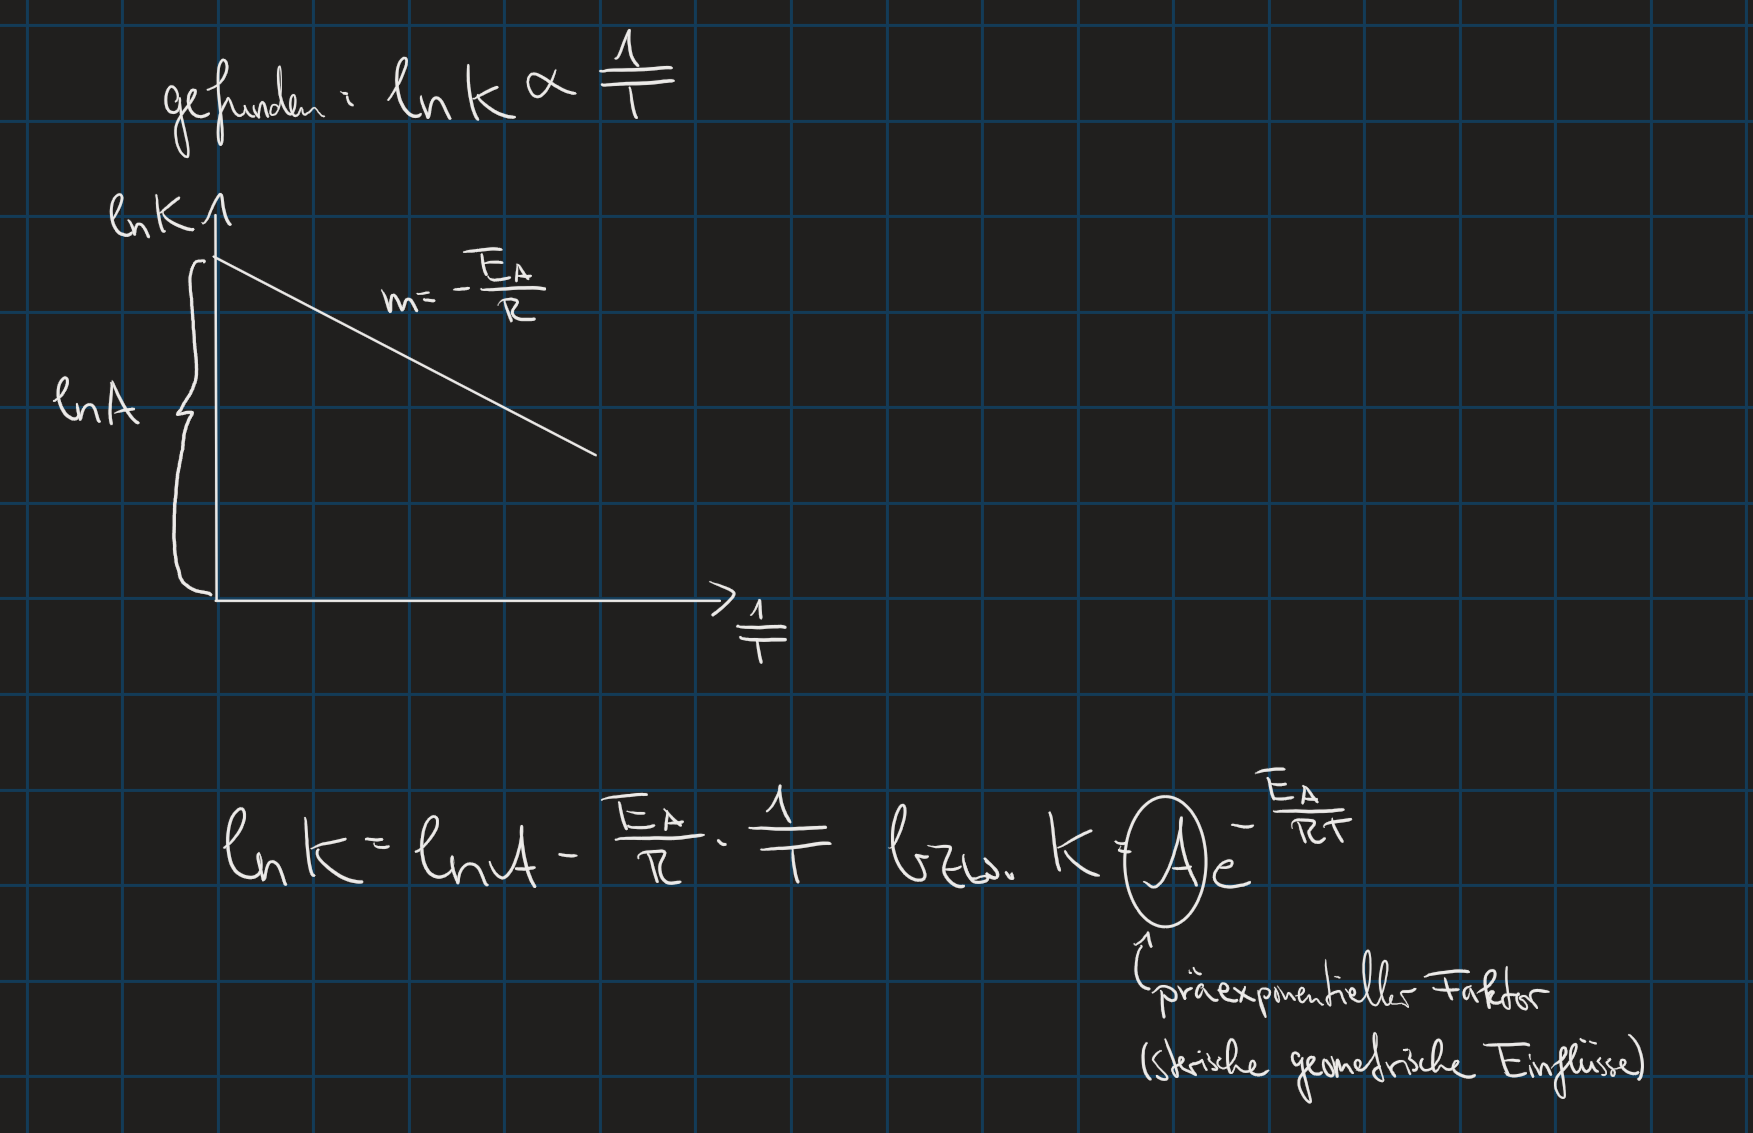 gefunden: ln K ∝ 1/T
ln K
m = - E_A/R
ln A
1/T
ln K = ln A - E_A/R · 1/T bzw. K = A e^(-E_A/RT)
präexponentieller Faktor
(sterische geometrische Einflüsse)